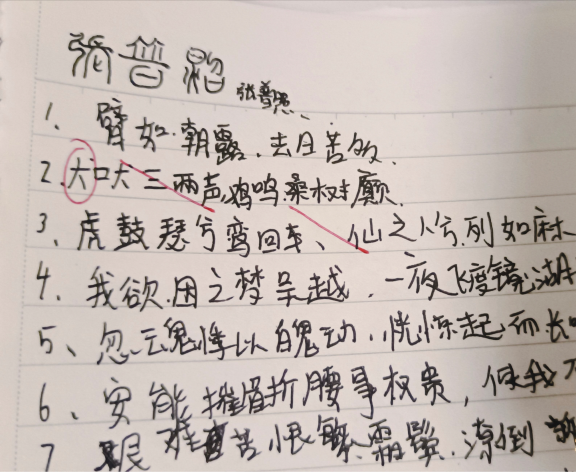 張普照 张普照
1、臂如朝露、去日苦多、
2、犬口犬三两声鸡鸣桑树颠
3、虎鼓瑟兮鸾回车、仙之人兮列如麻
4、我欲因之梦吴越、一夜飞度镜湖
5、忽云魂悸以魄动、恍惊起而长
6、安能摧眉折腰事权贵,使我不
7 艰难苦恨繁霜鬓、潦倒